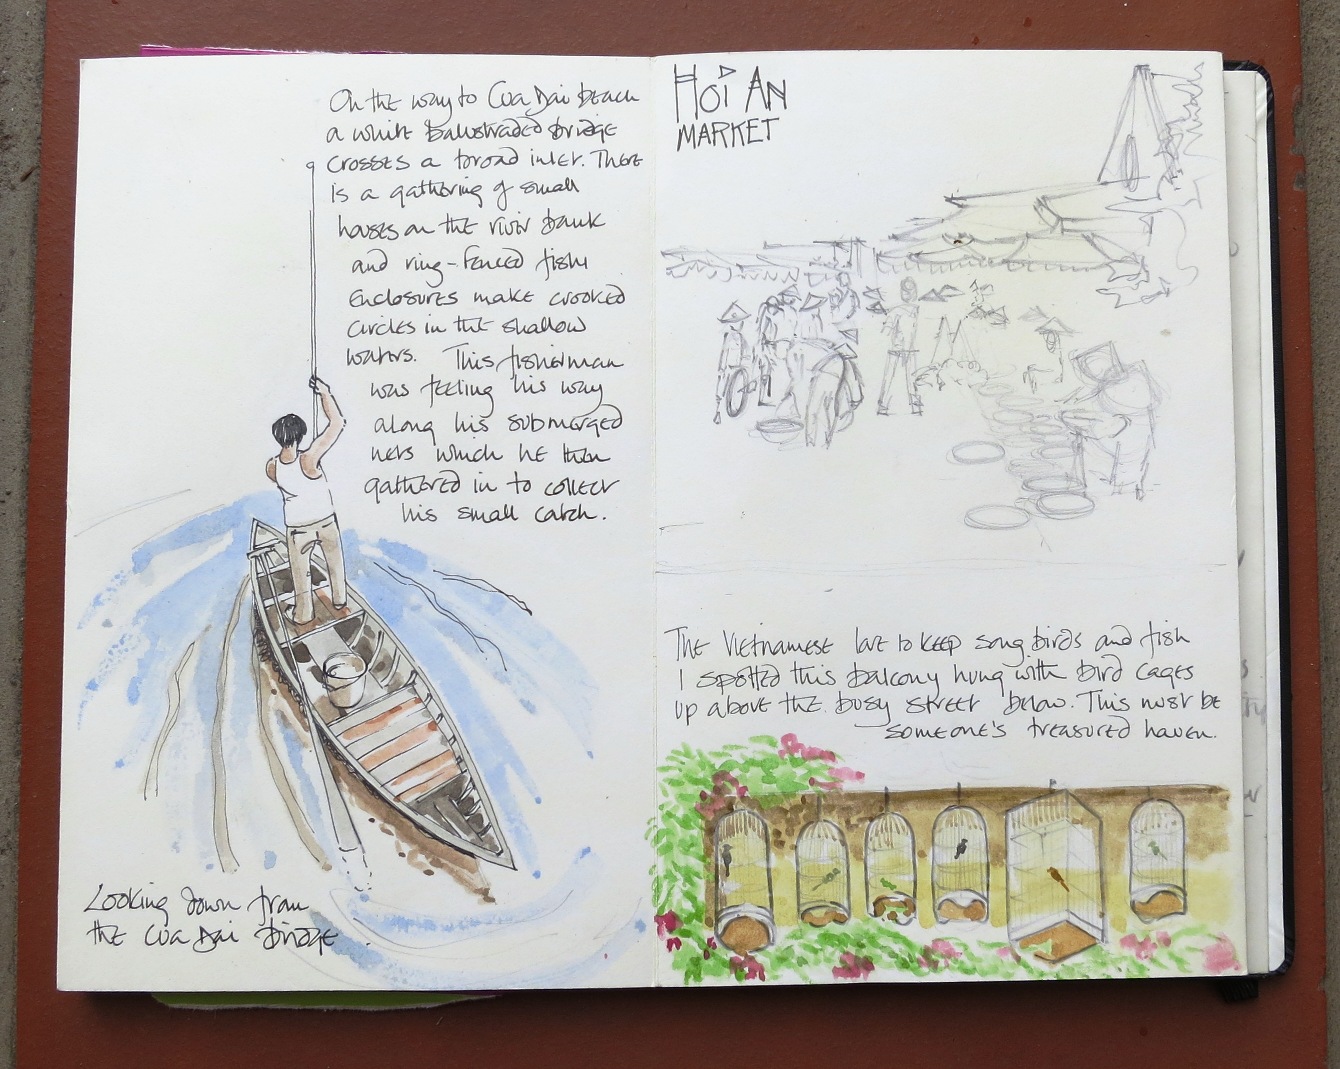 On the way to Cua Dai beach
a white balustraded bridge
crosses a broad inlet. There
is a gathering of small
houses on the river bank
and ring-fenced fish
enclosures make crooked
circles in the shallow
waters. This fisherman
was feeling his way
along his submerged
nets which he then
gathered in to collect
his small catch.
Looking down from
the Cua Dai Bridge
HOI AN
MARKET
The Vietnamese love to keep song birds and fish
I spotted this balcony hung with bird cages
up above the busy street below. This must be
someone's treasured haven.